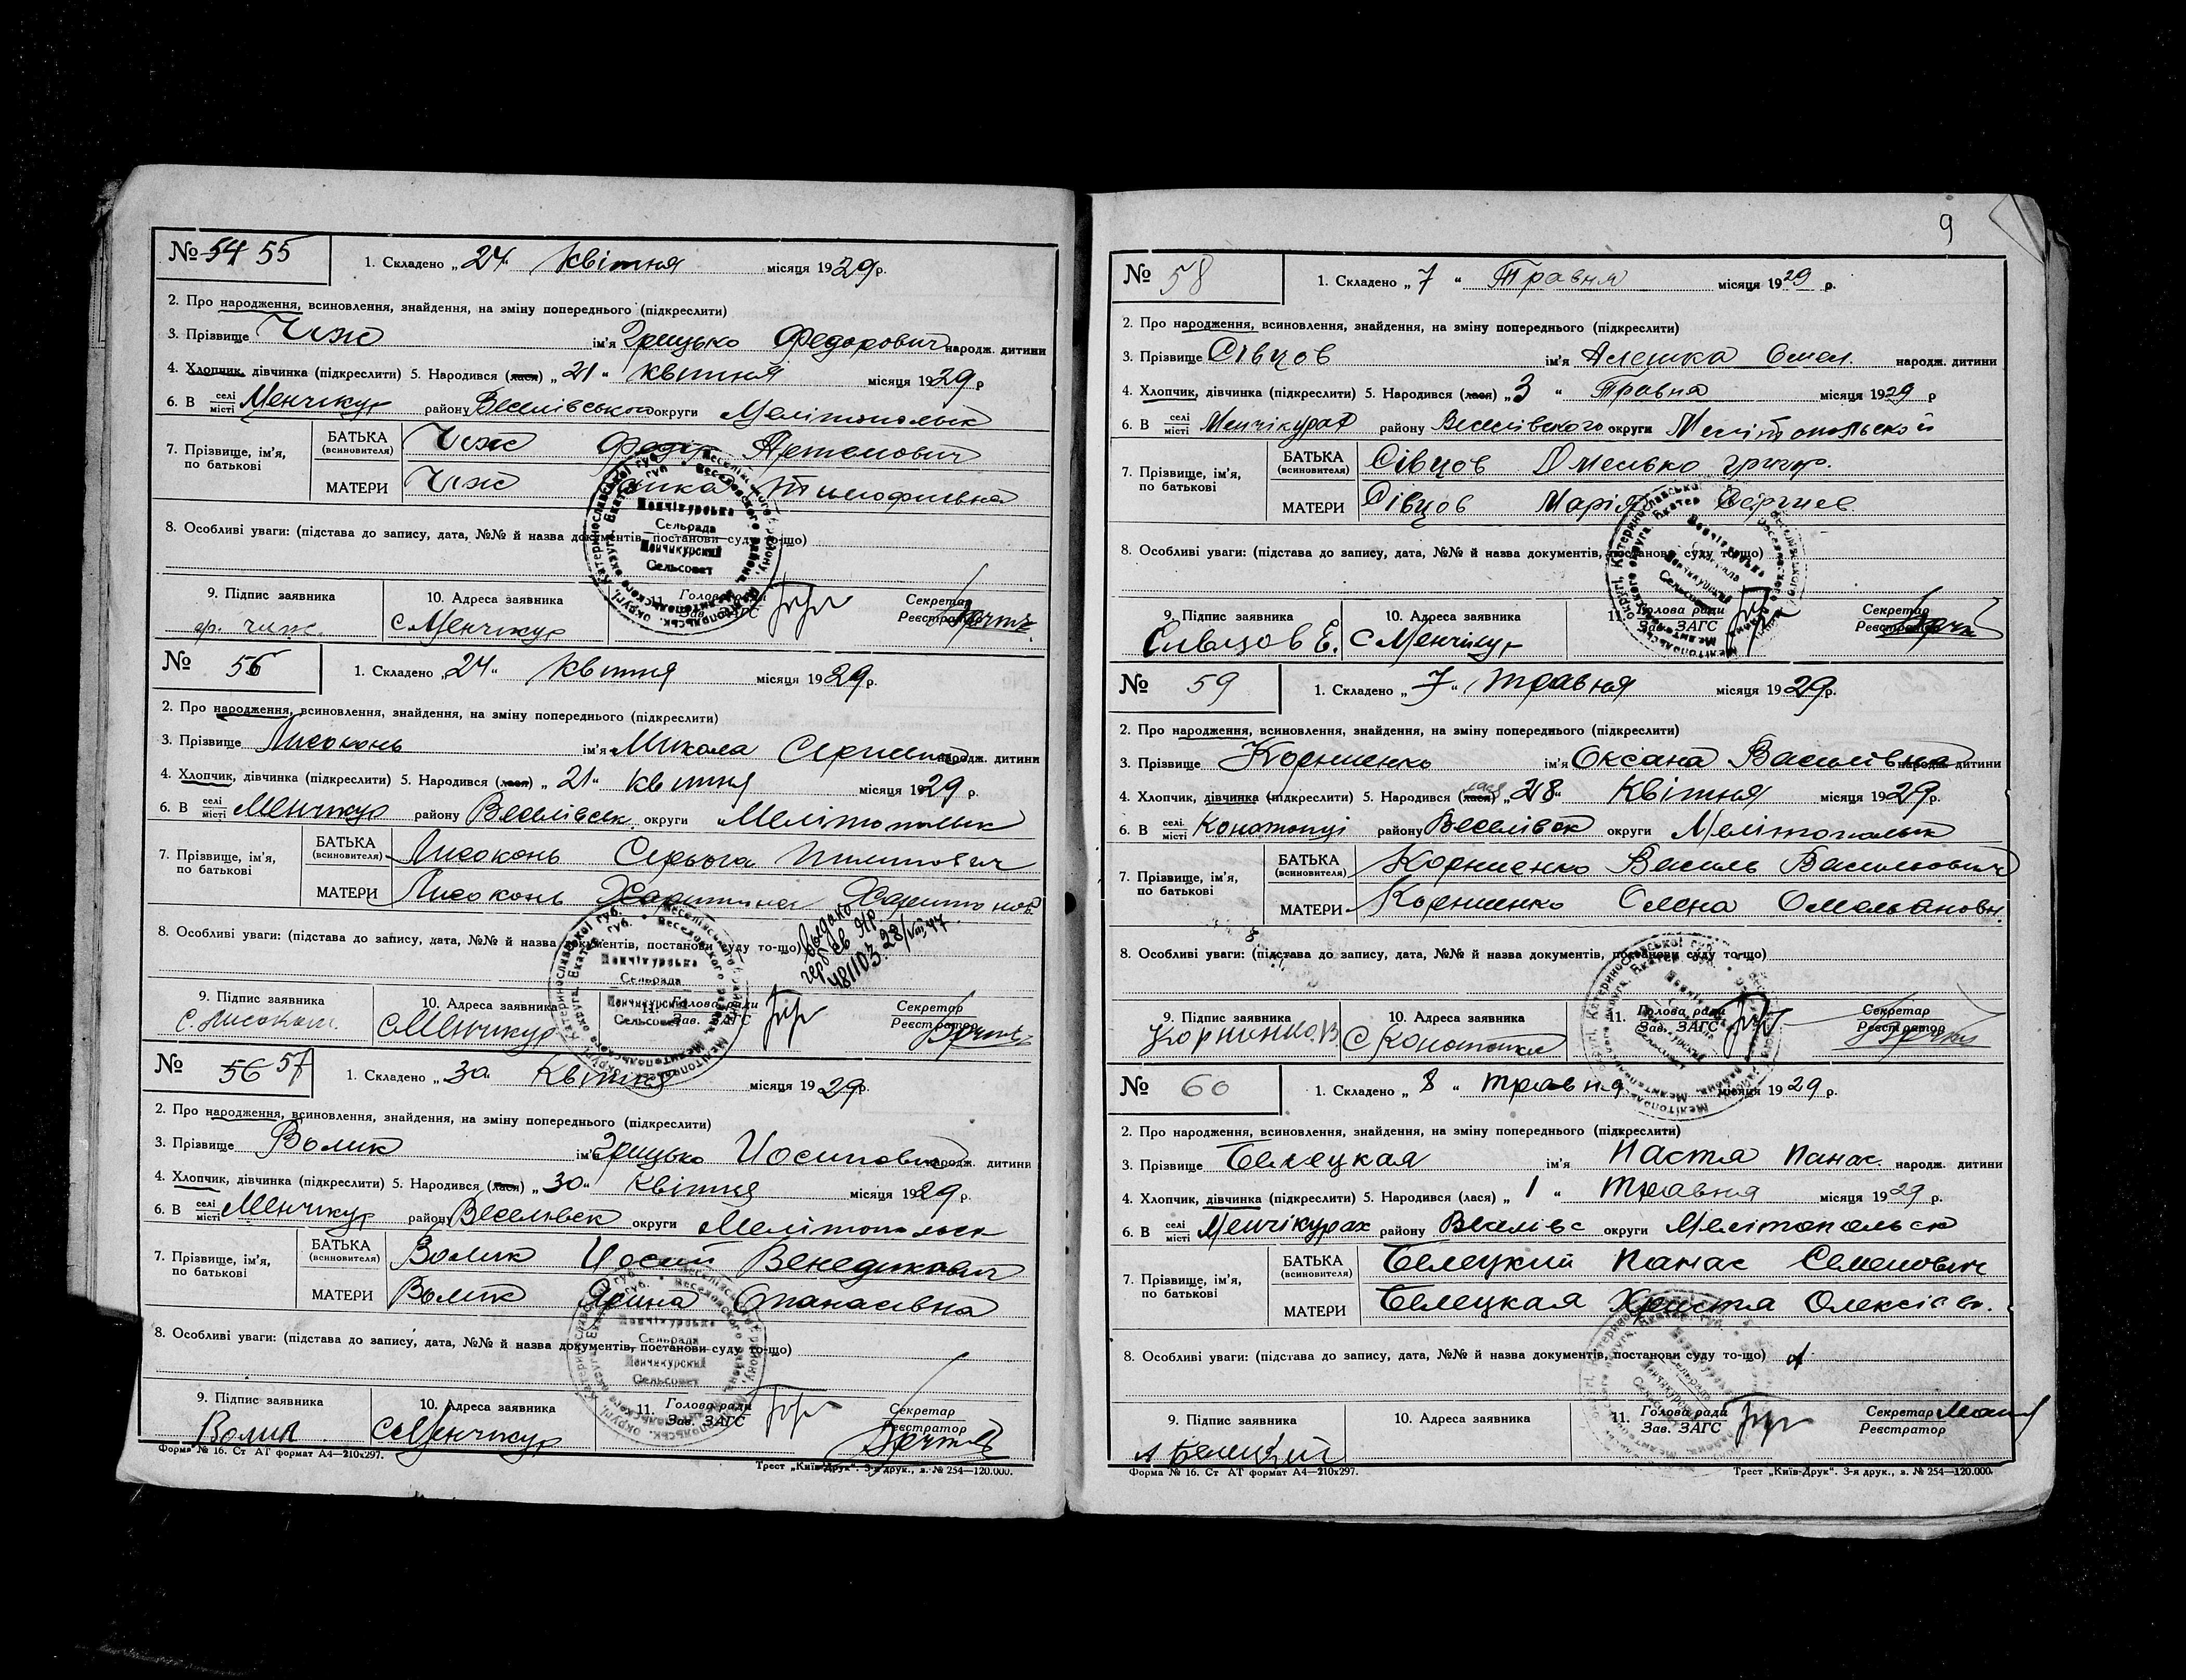 № 54 55 1. Складено „ 24 " квітня місяця 1929 р.
2. Про народження, всиновлення, знайдення, на зміну попереднього (підкреслити)
3. Прізвище Чиж ім'я Грицько Федорович народж. дитини
4. Хлопчик, дівчинка (підкреслити) 5. Народився (лася) „ 21 " квітня місяця 1929 р
6. В селі місті Менчікур району Веселівського округи Мелітопольск
7. Прізвище, ім'я, по батькові БАТЬКА (всиновителя) Чиж Федір Артемович
МАТЕРИ Чиж Тимофиевна
8. Особливі уваги: (підстава до запису, дата, №№ й назва документів, постанови суду то-що)
9. Підпис заявника 10. Адреса заявника 11. Голова ради Зав. ЗАГС Секретар Реєстратор
гр. чиж. с Менчикур
№ 56 1. Складено „ 24 " квітня місяця 1929 р.
2. Про народження, всиновлення, знайдення, на зміну попереднього (підкреслити)
3. Прізвище Лисоконь ім'я Микола Сергиевич народж. дитини
4. Хлопчик, дівчинка (підкреслити) 5. Народився (лася) „ 21 " квітня місяця 1929 р.
6. В селі місті Менчикур району Веселівськ округи Мелітопольск
7. Прізвище, ім'я, по батькові БАТЬКА (всиновителя) Лисоконь Серьога Пилипович
МАТЕРИ Лисоконь Харитина Харитонов.
8. Особливі уваги: (підстава до запису, дата, №№ й назва документів, постанови суду то-що)
Выдано
481103 28/VIII 47
9. Підпис заявника 10. Адреса заявника 11. Голова ради Зав. ЗАГС Секретар Реєстратор
С. Лисоконь с Менчикур
№ 56 57 1. Складено „ 30 " Квітня місяця 1929 р.
2. Про народження, всиновлення, знайдення, на зміну попереднього (підкреслити)
3. Прізвище Волик ім'я Грицько Иосипович народж. дитини
4. Хлопчик, дівчинка (підкреслити) 5. Народився (лася) „ 30 " квітня місяця 1929 р.
6. В селі місті Менчикур району Веселівск округи Мелітопольск
7. Прізвище, ім'я, по батькові БАТЬКА (всиновителя) Волик Иосип Венедикович
МАТЕРИ Волик Ярина Опанасівна
8. Особливі уваги: (підстава до запису, дата, №№ й назва документів, постанови суду то-що)
9. Підпис заявника 10. Адреса заявника 11. Голова ради Зав. ЗАГС Секретар Реєстратор
Волик с Менчикур
Форма № 16. Ст АТ формат А4—210х297. Трест „Київ-Друк". 3-я друк., з. № 254—120.000.
9
№ 58 1. Складено „ 7 " Травня місяця 1929 р.
2. Про народження, всиновлення, знайдення, на зміну попереднього (підкреслити)
3. Прізвище Сівцов ім'я Алешка Омел. народж. дитини
4. Хлопчик, дівчинка (підкреслити) 5. Народився (лася) „ 3 " Травня місяця 1929 р
6. В селі місті Менчікурах району Веселівского округи Мелітопольской
7. Прізвище, ім'я, по батькові БАТЬКА (всиновителя) Сівцов Омелько григ.
МАТЕРИ Сівцов Марія Сергиев
8. Особливі уваги: (підстава до запису, дата, №№ й назва документів, постанови суду то-що)
9. Підпис заявника 10. Адреса заявника 11. Голова ради Зав. ЗАГС Секретар Реєстратор
Сивцов Е. с Менчікур
№ 59 1. Складено „ 7 " травня місяця 1929 р.
2. Про народження, всиновлення, знайдення, на зміну попереднього (підкреслити)
3. Прізвище Корниенко ім'я Оксана Василівна народж. дитини
4. Хлопчик, дівчинка (підкреслити) 5. Народився (лася) лася „ 28 " Квітня місяця 1929 р.
6. В селі місті Конотопці району Веселівск округи Мелітопольск
7. Прізвище, ім'я, по батькові БАТЬКА (всиновителя) Корниенко Василь Васильович
МАТЕРИ Корниенко Олена Омельановн.
8. Особливі уваги: (підстава до запису, дата, №№ й назва документів, постанови суду то-що)
9. Підпис заявника 10. Адреса заявника 11. Голова ради Зав. ЗАГС Секретар Реєстратор
Корниенко. В с
№ 60 1. Складено „ 8 " травня місяця 1929 р.
2. Про народження, всиновлення, знайдення, на зміну попереднього (підкреслити)
3. Прізвище Белецкая ім'я Настя Панас. народж. дитини
4. Хлопчик, дівчинка (підкреслити) 5. Народився (лася) „ 1 " травня місяця 1929 р.
6. В селі місті Менчікурах району Веселівс округи Мелітопольск
7. Прізвище, ім'я, по батькові БАТЬКА (всиновителя) Белецкий Панас Семенович
МАТЕРИ Белецкая Христя Олексіев.
8. Особливі уваги: (підстава до запису, дата, №№ й назва документів, постанови суду то-що)
9. Підпис заявника 10. Адреса заявника 11. Голова ради Зав. ЗАГС Секретар Реєстратор
А Белецкий
Форма № 16. Ст АТ формат А4—210х297. Трест „Київ-Друк". 3-я друк., з. № 254—120.000.